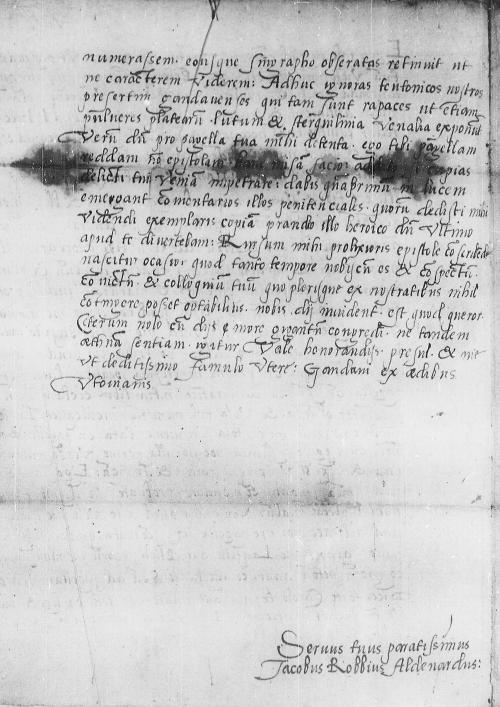 numerassem. eousque sinographo obseratas retinuit ut
ne caracterem viderem: Adhuc ignoras teutonicos nostros
presertim gandavenses qui tam sunt rapaces ut etiam
pulveres platearū. lutum & sterquilinia venalia exponūt
Verū dū pro pavella tua mihi detenta. ego tibi pavellam
reddam nō epistolarē misā facio copias
delicti tui veniā impetrare: dabis in lucem
emergant cōmentarios illos penitenciales. quorū dedisti mihi
videndi exemplaris copiā prandio illo heroico dū ultimo
apud te divertebam: Rursum mihi prolixioris epistole cōscribēde
nascitur ocasio quod tanto tempore nobis os & cōspectū
cō & colloquiū tuū quo plerisque ex nostratibus nihil
cōtingere posset optabilius. nobis dij invident. est quod queror
Ceterum nolo cū dijs more gigantū congredi. ne tandem
æthnā sentiam. igitur Vale honorandissi presul. & me
ut deditissimo famulo utere: Gandavi ex ædibus
Utovianis
Servus tuus paratissimus
Jacobus Robbius Aldenardus: